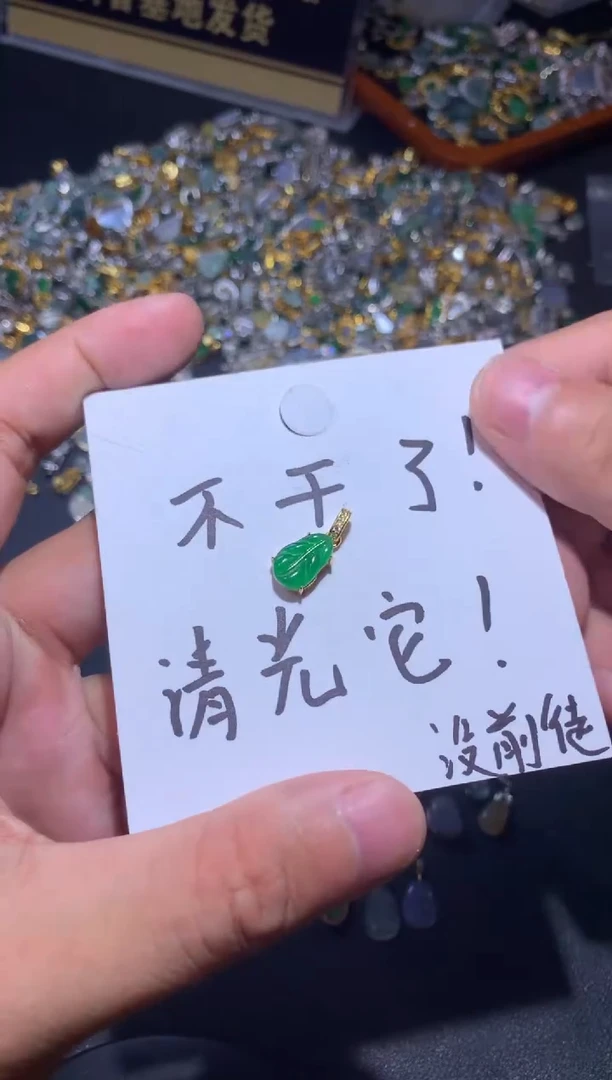 基地发货
不干了！
清光它！
没前途